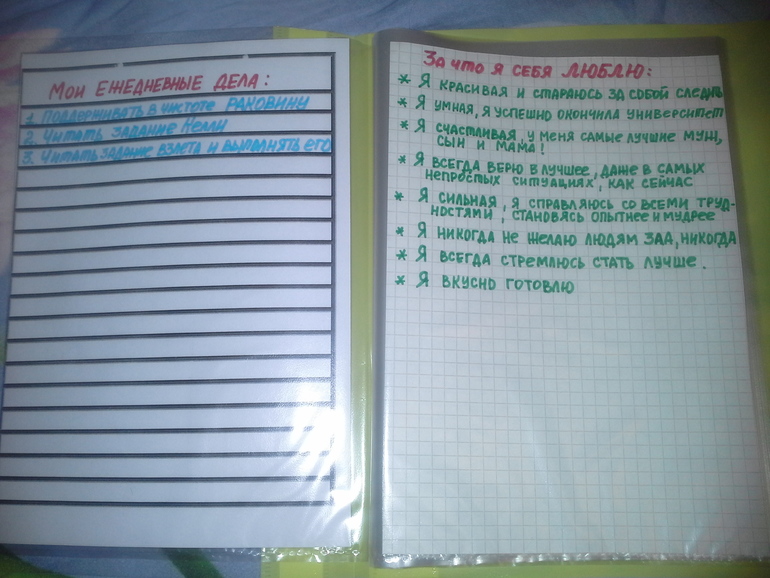 Мои ежедневные дела:
1. Поддерживать в чистоте раковину
2. Читать задание Нелли
3. Читать задание взлета и выполнять его
За что я себя люблю:
* Я красивая и стараюсь за собой следить
* Я умная, я успешно окончила университет
* Я счастливая, у меня самые лучшие муж,
сын и мама!
* Я всегда верю в лучшее, даже в самых
непростых ситуациях, как сейчас
* Я сильная, я справляюсь со всеми труд-
ностями, становясь опытнее и мудрее
* Я никогда не желаю людям зла, никогда
* Я всегда стремлюсь стать лучше.
* Я вкусно готовлю